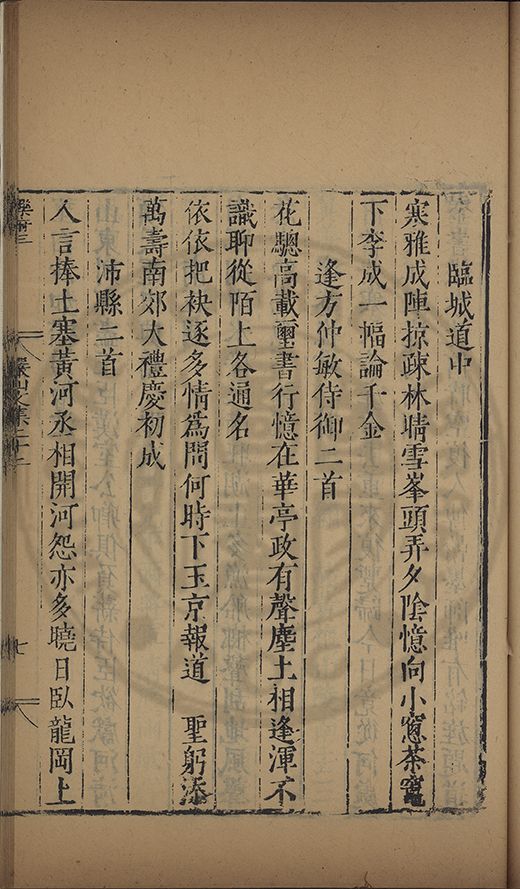 臨城道中
寒雅成陣掠疎林晴雪峯頭弄夕陰憶向小窻茶竈
下李成一幅論千金
逢方仲敏侍御二首
花驄高載璽書行憶在華亭政有聲塵土相逢渾不
識聊從陌上各通名
依依把袂逐多情為問何時下玉京報道　聖躬添
萬壽南郊大禮慶初成
沛縣二首
人言捧土塞黃河丞相開河怨亦多曉日臥龍岡上